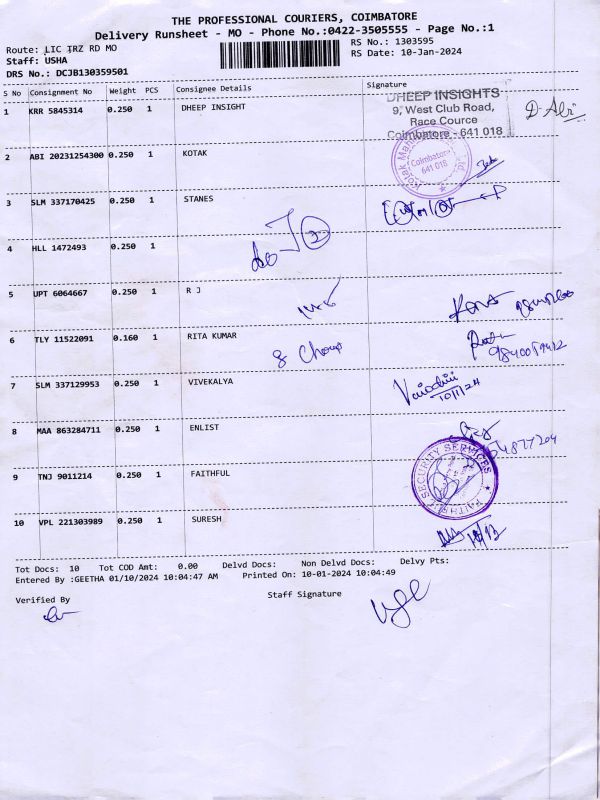 THE PROFESSIONAL COURIERS, COIMBATORE
Delivery Runsheet - MO - Phone No.:0422-3505555 - Page No.:1
Route: LIC TRZ RD MO
RS No.: 1303595
Staff: USHA
RS Date: 10-Jan-2024
DRS No.: DCJB130359501
S No Consignment No Weight PCS Consignee Details Signature
1 KRR 5845314 0.250 1 DHEEP INSIGHT
DHEEP INSIGHTS
9, West Club Road,
Race Cource
Coimbatore - 641 018
2 ABI 20231254300 0.250 1 KOTAK
Coimbatore
641 018
3 SLM 337170425 0.250 1 STANES
4 HLL 1472493 0.250 1
5 UPT 6064667 0.250 1 R J
6 TLY 11522091 0.160 1 RITA KUMAR
7 SLM 337129953 0.250 1 VIVEKALYA
10/1/24
8 MAA 863284711 0.250 1 ENLIST
9 TNJ 9011214 0.250 1 FAITHFUL
FAITHFUL SECURITY SERVICES
10 VPL 221303989 0.250 1 SURESH
Tot Docs: 10 Tot COD Amt: 0.00 Delvd Docs: Non Delvd Docs: Delvy Pts:
Entered By :GEETHA 01/10/2024 10:04:47 AM Printed On: 10-01-2024 10:04:49
Verified By Staff Signature